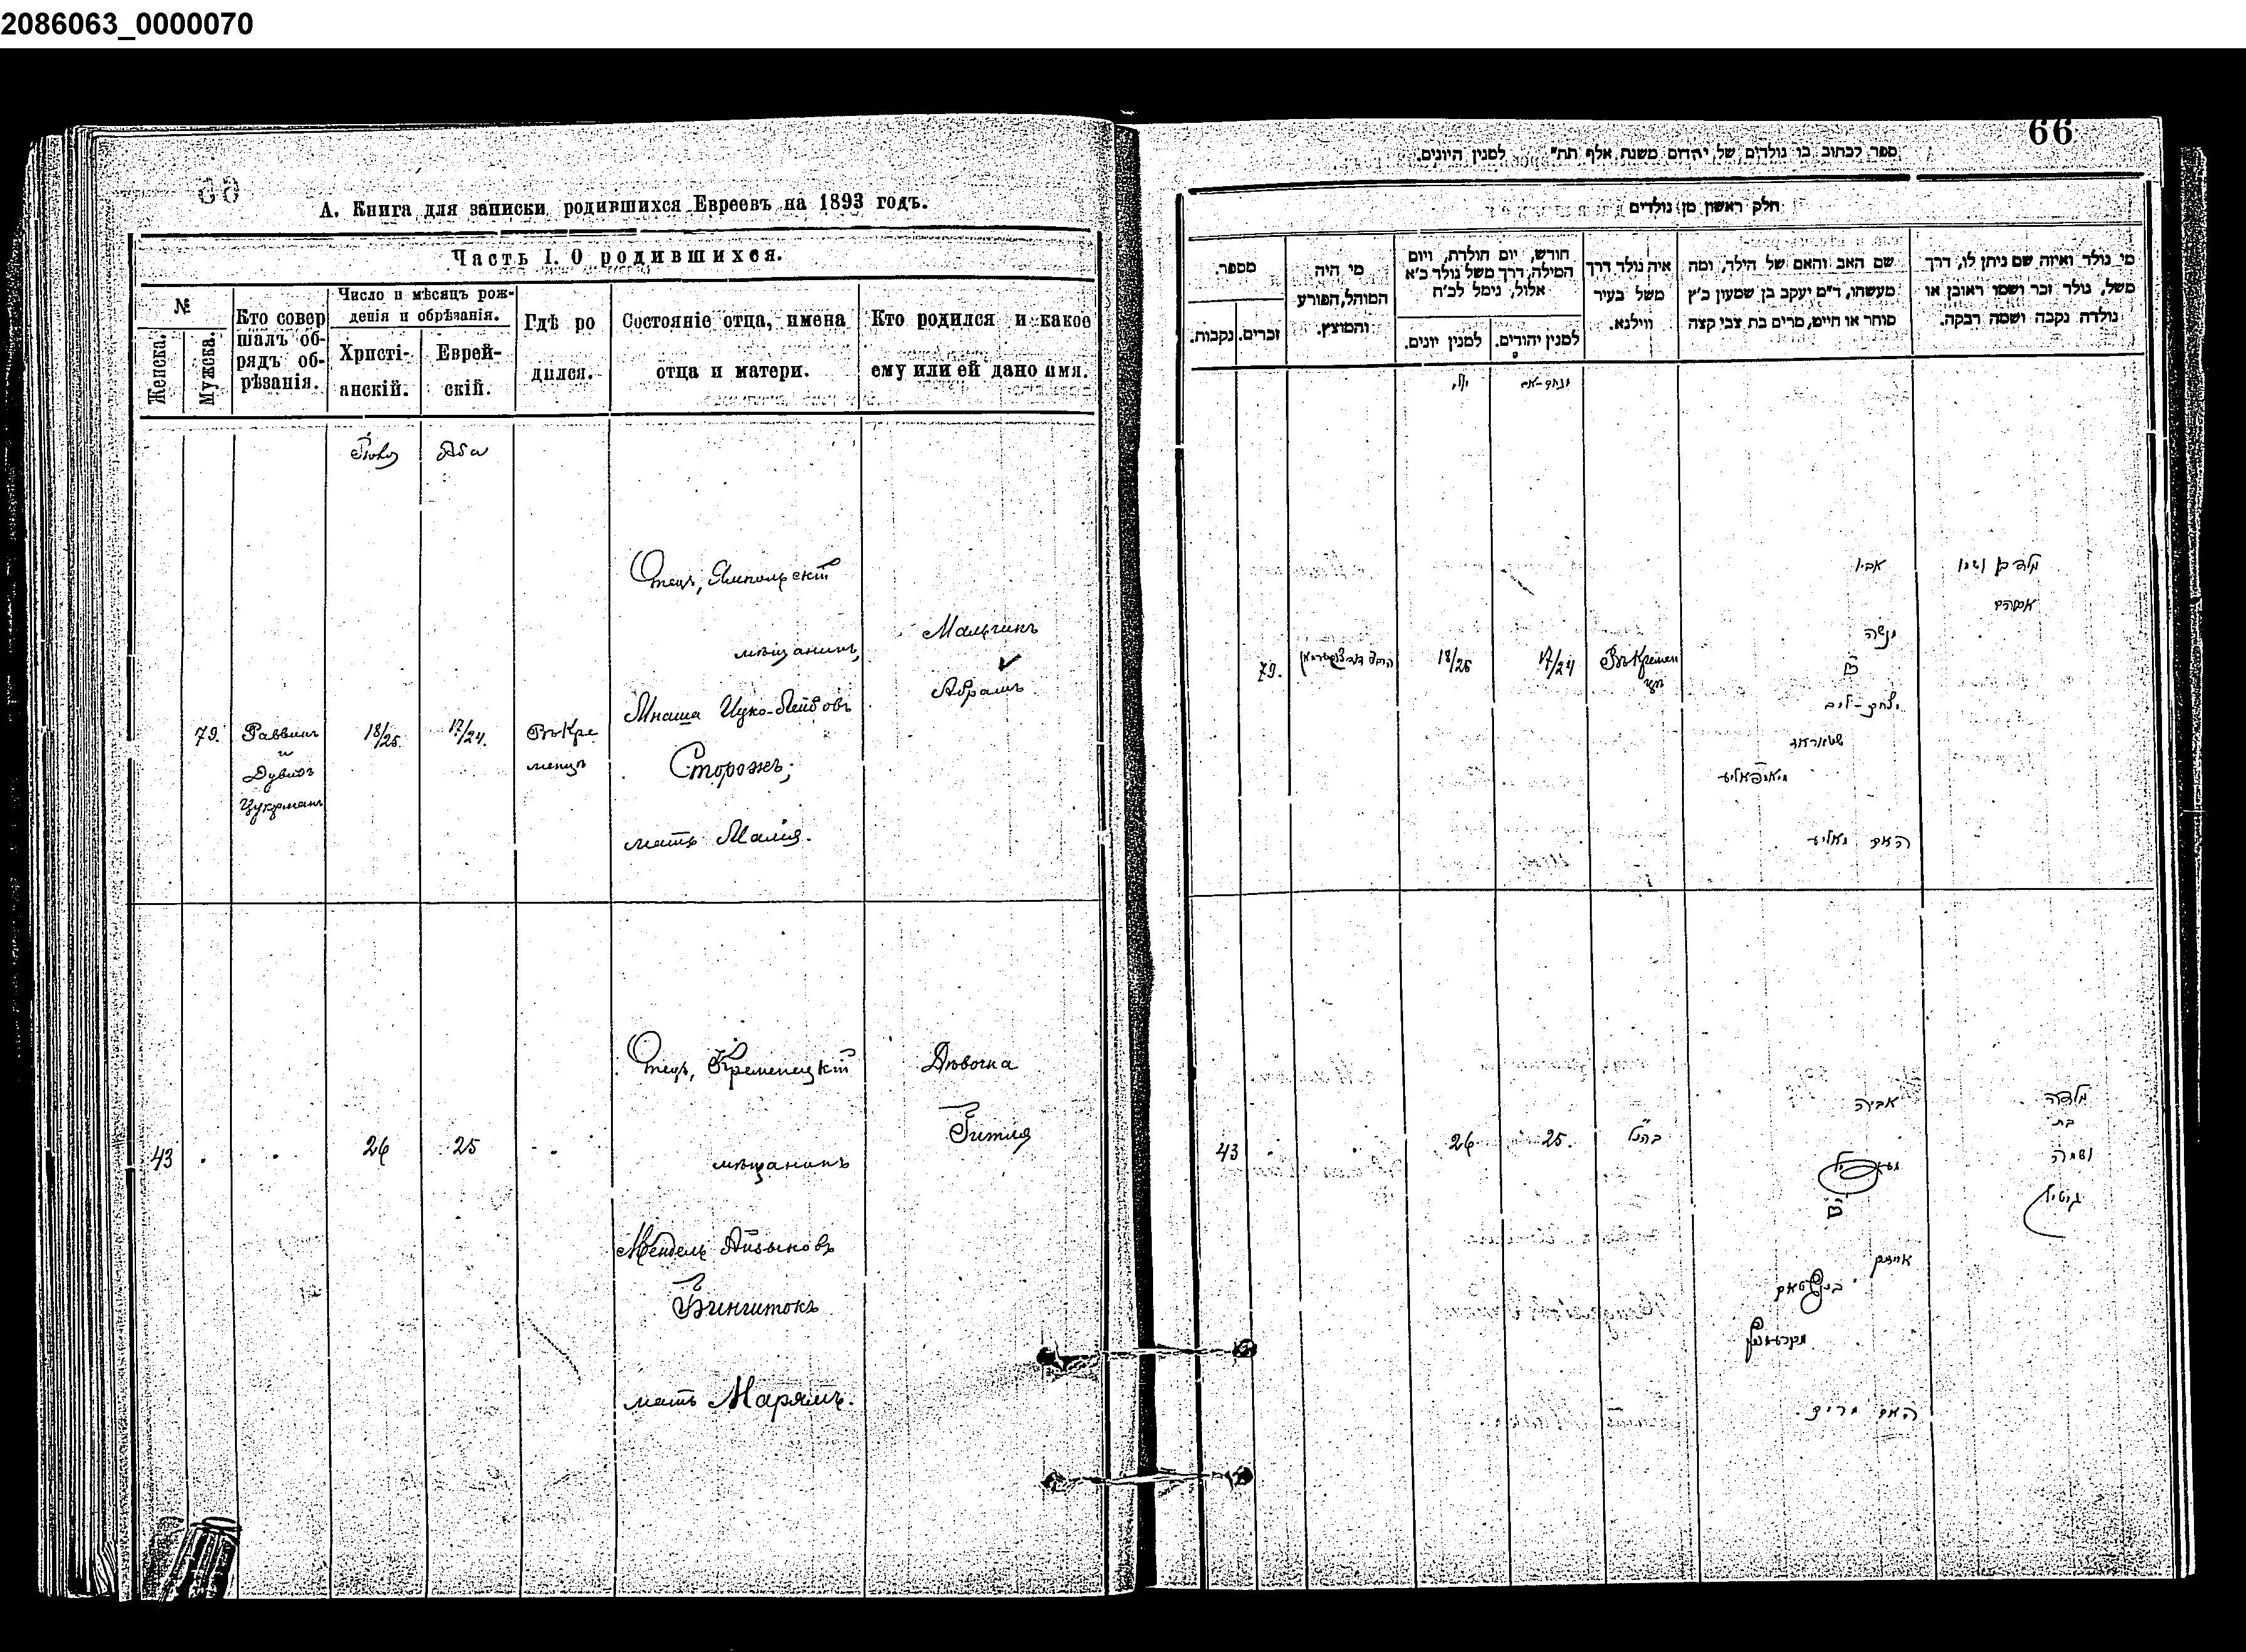 2086063_0000070
А. Книга для записки родившихся Евреевъ на 1893 годъ.
Часть I. О родившихся.
№
Женска.
Мужска.
Кто совер
шалъ об-
рядъ об-
рѣзанія.
Число и мѣсяцъ рож-
денія и обрѣзанія.
Христі-
анскій.
Еврей-
скій.
Гдѣ ро
дился.
Состояніе отца, имена
отца и матери.
Кто родился и какое
ему или ей дано имя.
Аба
79.
Раввинъ
и
Дувидъ
Цукерманъ
18/25.
17/24.
Въ Кре
менцѣ
Отецъ, Ямпольскій
мѣщанинъ,
Мнаша Ицко-Лейбовъ
Сторожъ;
мать Малія.
Мальчикъ
Абрамъ
43
26
25
Отецъ, Кременецкій
мѣщанинъ
Мендель Айзыковъ
мать Марямъ.
Дѣвочка
Гитля
66
ספר לכתוב בו נולדים של יהודים משנת אלף תת״ למנין היונים.
חלק ראשון מן נולדים
מספר.
זכרים.
נקבות.
מי היה
המוהל, הפורע
והמוצץ.
חודש, יום הולדת, ויום
המילה, דרך משל נולד כ׳א
אלול, נימל לכ׳ח
למנין יונים.
למנין יהודים.
איה נולד דרך
משל בעיר
ווילנא.
שם האב והאם של הילד, ומה
מעשהו, ד״מ יעקב בן שמעון כ׳ץ
סוחר או חייט, מרים בת צבי קצה
מי נולד ואיזה שם ניתן לו, דרך
משל, נולד זכר ושמו ראובן או
נולדה נקבה ושמה רבקה.
יולי
מנחם-אב
79.
18/25
17/24
אביו
מנשה
יצחק-ליב
האם מאליע
ושמו
אברהם
43
26
25.
אביה
האם מרים
בת
ושמה
גיטיל